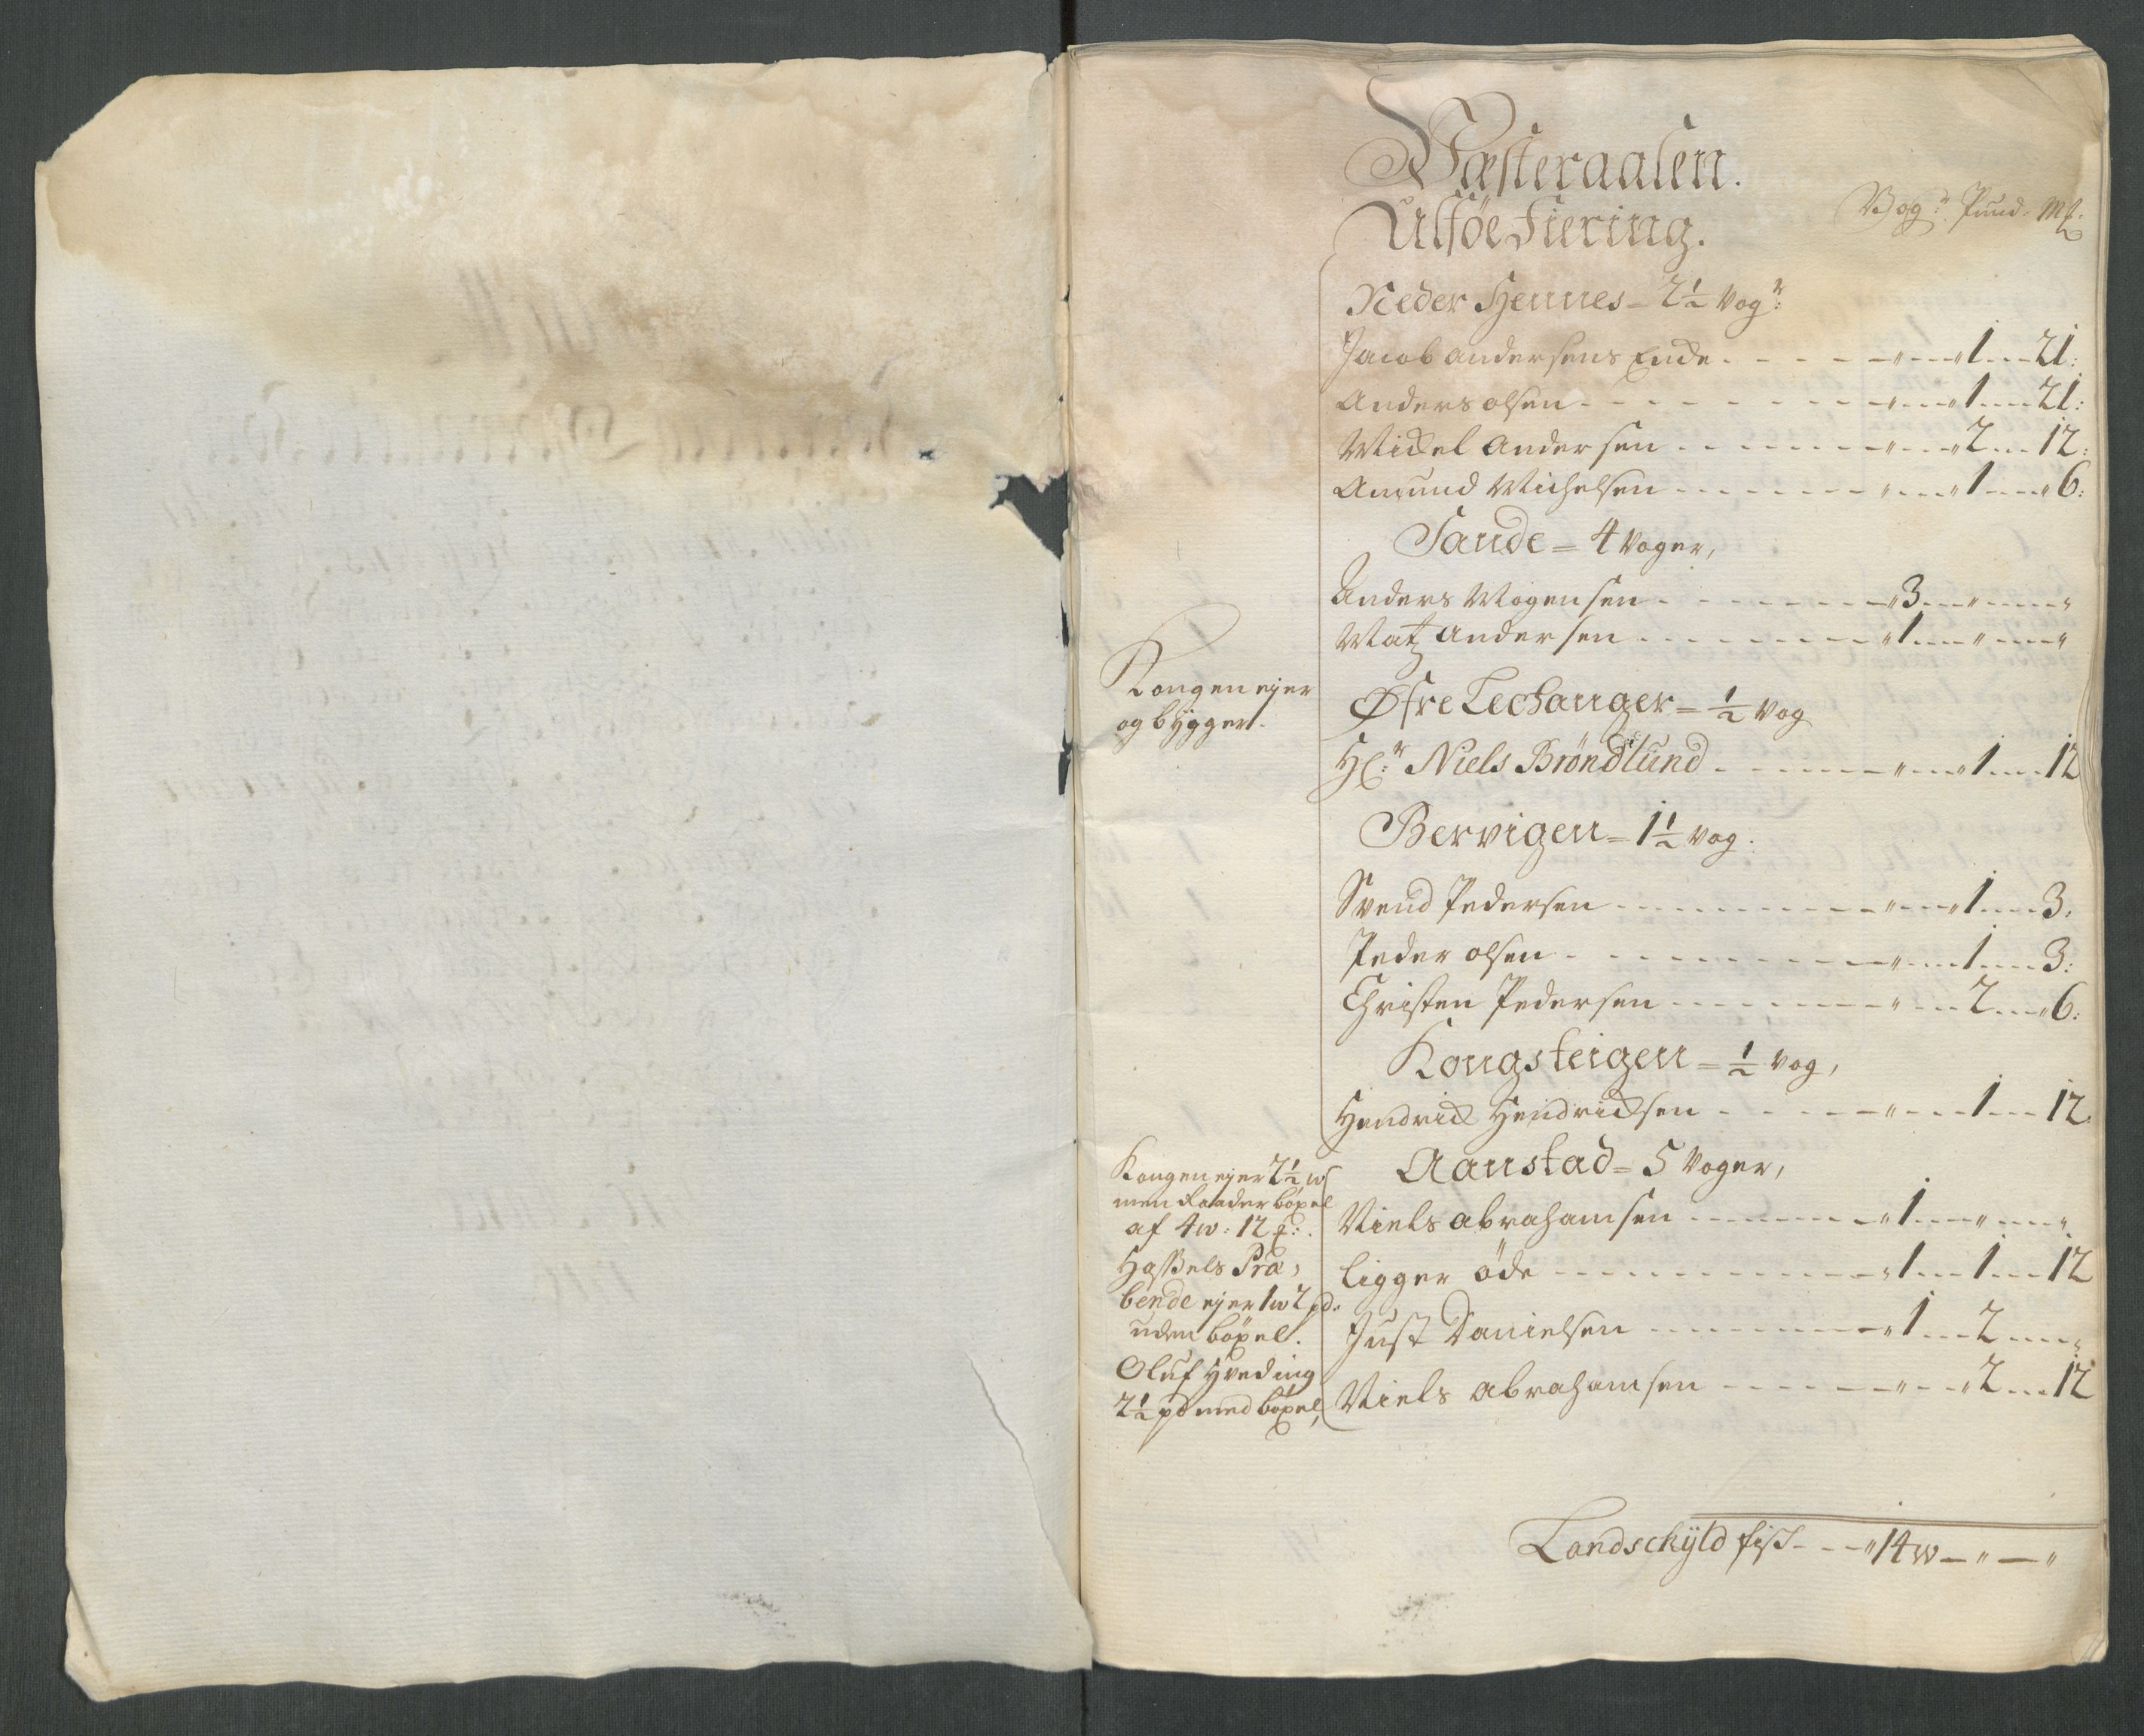 Væsteraalen.
Ulföe Fiering.
Vog:r Pund. Mk
Neder Hennes - 2½ Vog:r
Jacob andersens Enche - " - 1 - 21:
Anders olsen - " - 1 - 21:
Mickel Andersen - " - 2 - 12:
Amund Michelsen - " - 1 - 6:
Sande = 4 Voger,
Anders Mogensen - 3 - " - "
Matz Andersen - 1 - " - "
Kongen ejer
og bÿgger.
Øfre Lechanger = ½ Vog
H:r Niels Bröndlund - " - 1 - 12
Bervigen = 1½ Vog.
Svend Pedersen - " - 1 - 3.
Peder olsen - " - 1 - 3:
Christen Pedersen - " - 2 - 6:
Kongsteigen = ½ Vog,
Hendrick Hendricksen - " - 1 - 12.
Kongen ejer 2½ w
men Raader böxel
af 4 w: 12 p:
Hassels Præ,
bende ejer 1 w 2 pd:
uden böxel.
Oluf Hveding
2½ pd med böxel,
Aanstad = 5 Voger,
Niels abrahamsen - 1 - " - "
ligger öde - 1 - 1 - 12
Just Danielsen - 1 - 2 - "
Niels abrahamsen - " - 2 - 12
Landschÿld fisk - 14 w - " - "